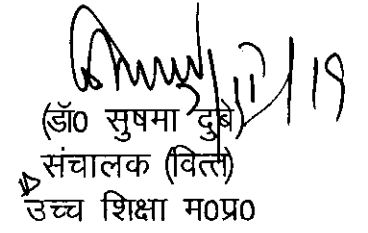 (डॉ0 सुषमा दुबे)
संचालक (वित्त)
उच्च शिक्षा म0प्र0